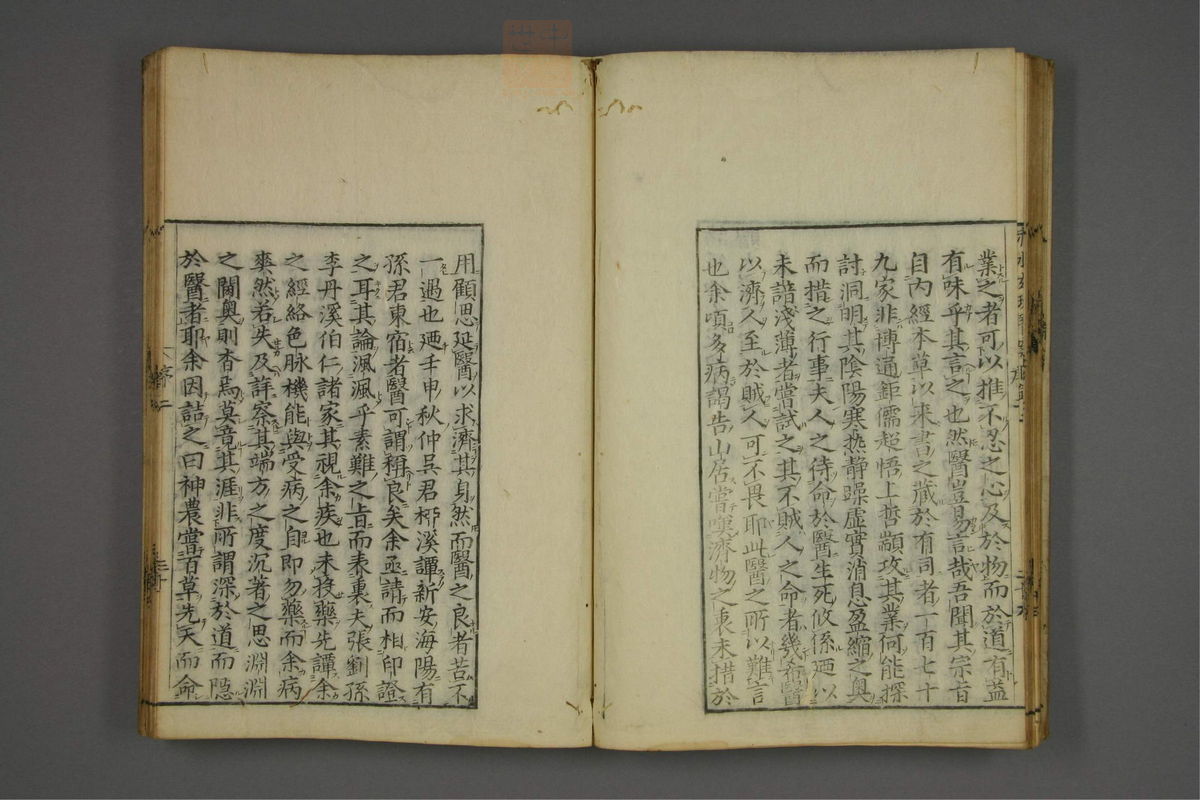 業之者可以推不忍之心及於物而於道有益
有味乎其言之也然醫豈易言哉吾聞其宗旨
自內經本草以来書之藏於有司者一百七十
九家非博通鉅儒超悟上哲顓攻其業何能探
討洞明其陰陽寒热静躁虚實消息盈縮之奧
而措之行事夫人之待命於醫生死攸係廼以
未諳淺薄者嘗試之其不賊人之命者幾希醫
以濟人至於賊人可不畏耶此醫之所以難言
也余頃多病謁告山居嘗嘆濟物之衷未措於
用顧思延醫以求濟其身然而醫之良者苦不
一遇也廼壬申秋仲吳君栁溪譚新安海陽有
孫君東宿者醫可謂稱良矣余亟請而相印證
之耳其論渢渢乎素難之旨而表裏夫張劉孫
李丹溪伯仁諸家其視余疾也未投藥先譚余
之經絡色脉機能與受病之自即勿藥而余病
爽然若失及詳察其端方之度沉著之思淵淵
之閫奧則杳焉莫竟其涯非所謂深於道而隠
於醫者耶余因詰之曰神農嘗百草先天而命
序二